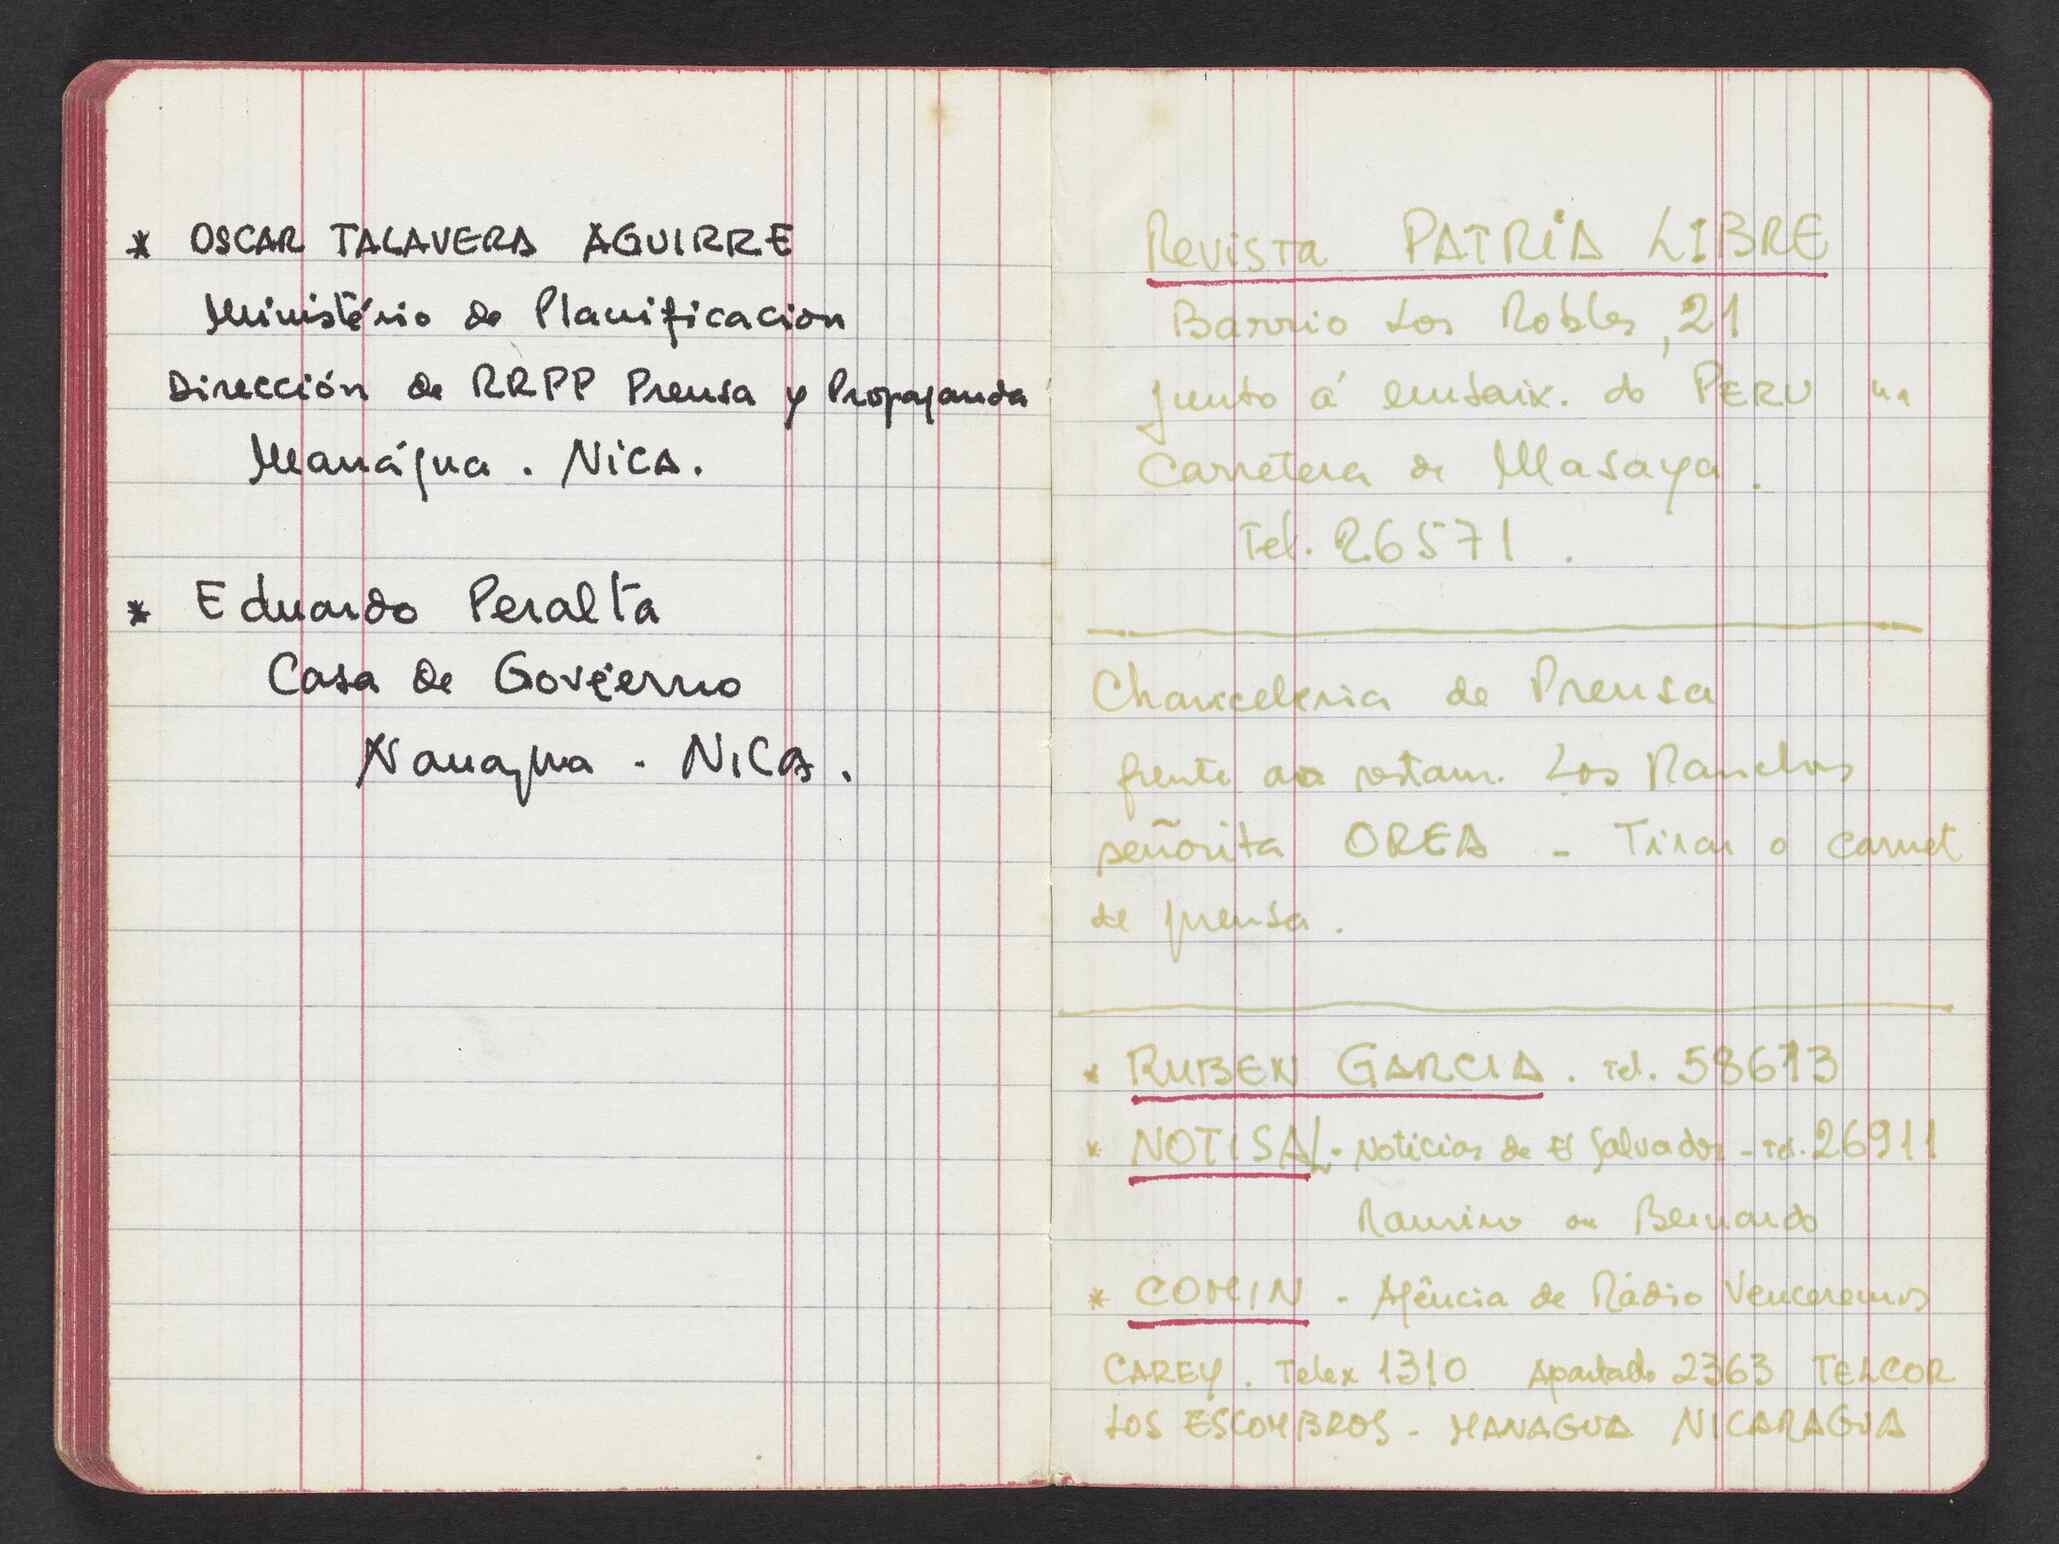 * OSCAR TALAVERA AGUIRRE
Ministério de Planificacion
Dirección de RRPP Prensa y Propaganda
Manágua. NICA.
* Eduardo Peralta
Casa de Govierno
Managua - NICA.
Revista PATRIA LIBRE
Barrio Los Robles, 21
junto á embaix. do PERU na
Carretera de Masaya.
Tel. 26571.
Chanceleria de Prensa
frente ao restaur. Los Ranchos
señorita OREA - Tirar o carnet
de prensa.
* RUBEN GARCIA. Tel. 58673
* NOTISAL. Noticias de El Salvador - Tel. 26911
Ramiro ou Bernardo
* COMIN - Agência de Rádio Venceremos
CAREY. Telex 1310 Apartado 2363 TELCOR
LOS ESCOMBROS - MANAGUA NICARAGUA